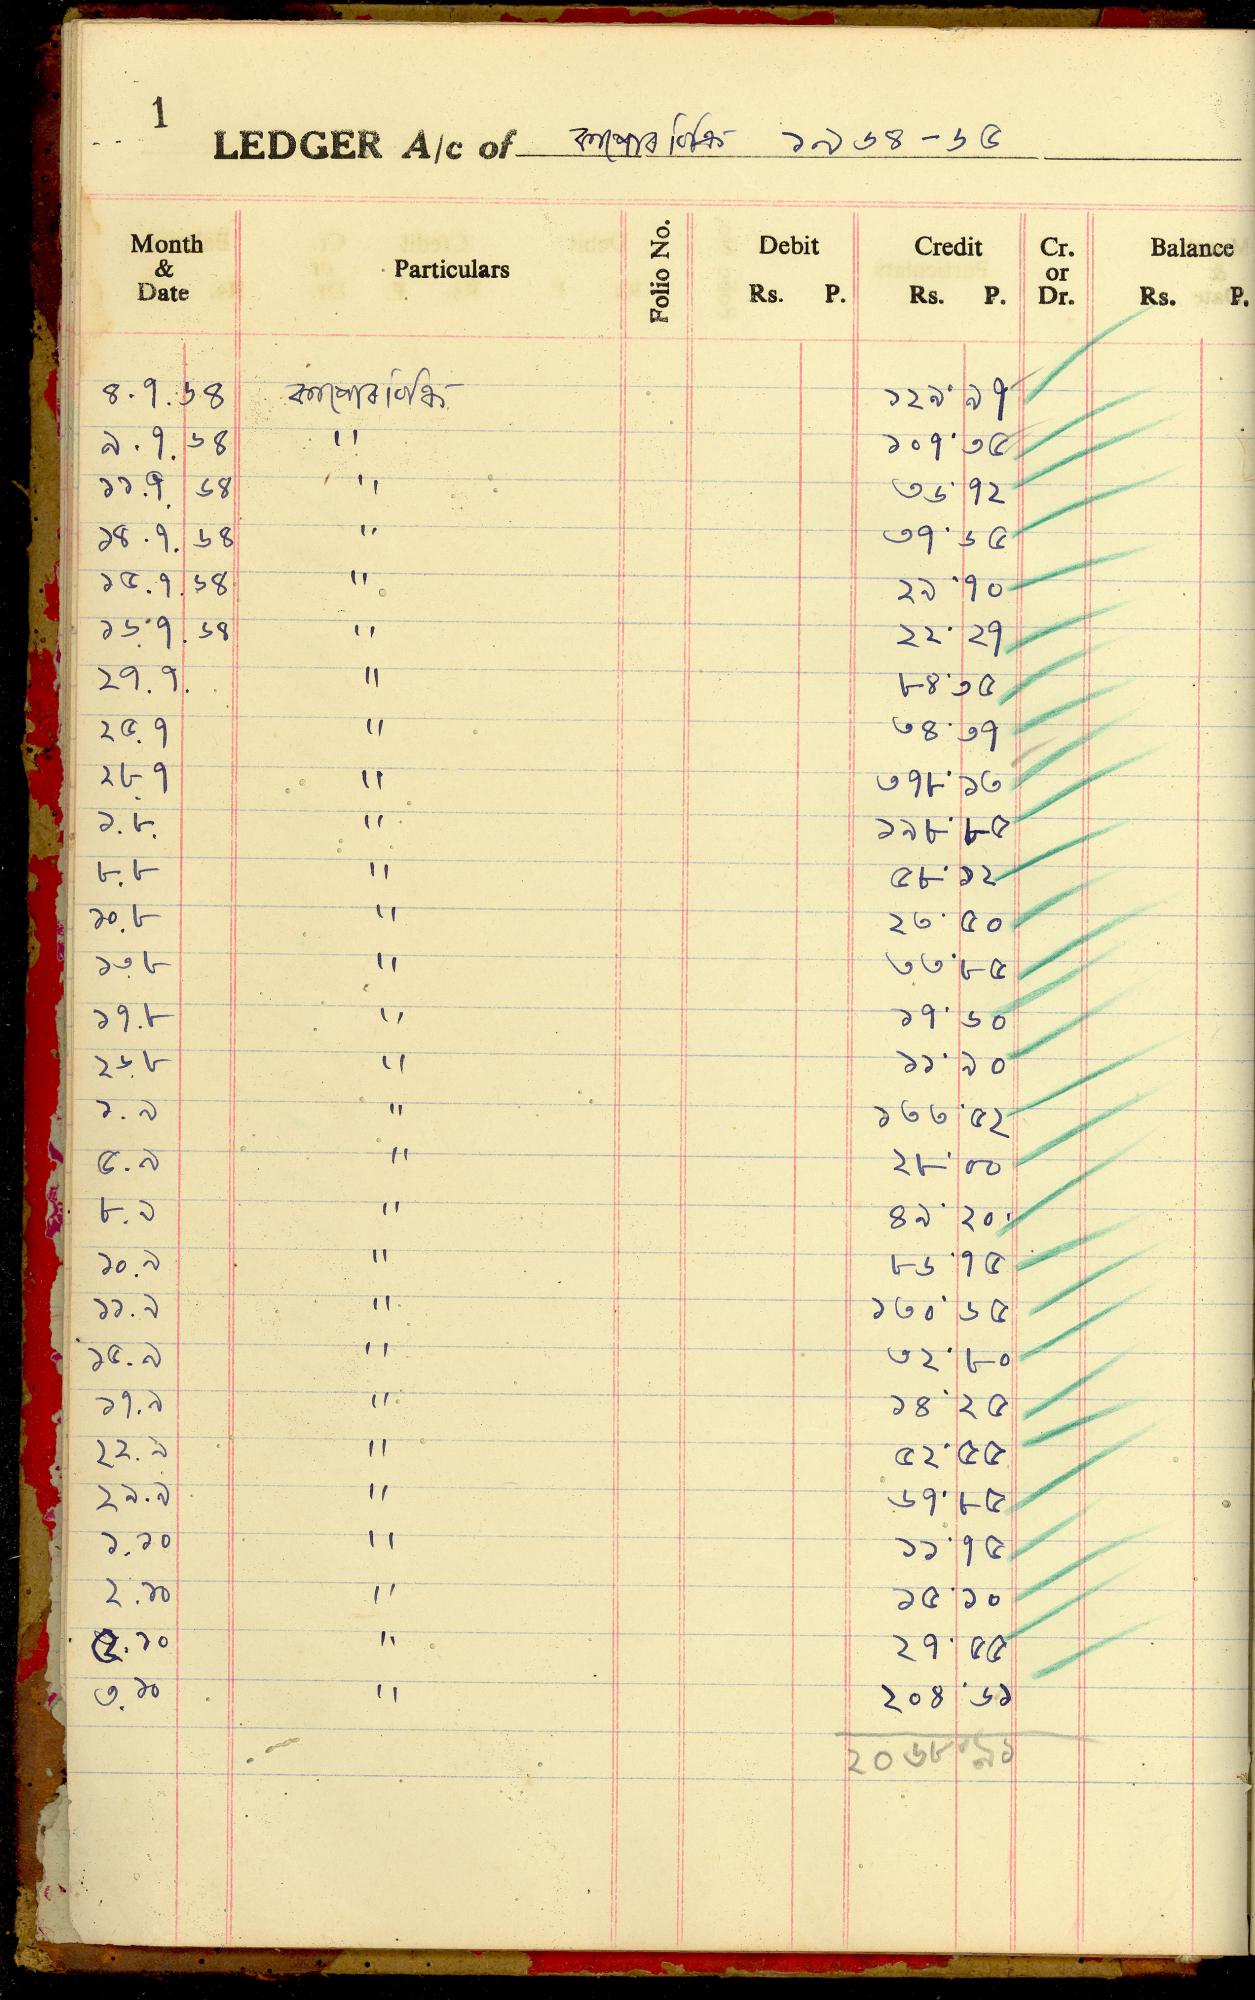 1
LEDGER A/c of কাগোর বিক্রি ১৯৬৪-৬৫
Month & Date Particulars Folio No. Debit Rs. P. Credit Rs. P. Cr. or Dr. Balance Rs. P.
৪.৭.৬৪ " ১২৯.৯৭
৯.৭.৬৪ " ১০৭.৩৫
১১.৭.৬৪ " ৩৬.৭২
১৪.৭.৬৪ " ৩৭.৬৫
১৫.৭.৬৪ " ২১.৭০
১৬.৭.৬৪ " ২২.২৭
২১.৭. " ৮৪.৩৫
২৫.৭ " ৩৪.৩৭
২৮.৭ " ৩৭৮.১৩
১.৮. " ১১৮.৮৫
৮.৮ " ৫৮.১২
১০.৮ " ২৩.৫০
১৩.৮ " ৩৩.৮৫
১৭.৮ " ১৭.৬০
২৬.৮ " ১১.৯০
১.৯ " ১৩৩.৫২
৫.৯ " ২৮.০০
৮.৯ " ৪৯.২০
১০.৯ " ৮৬.৭৫
১১.৯ " ১৩০.৬৫
১৫.৯ " ৩২.৮০
১৭.৯ " ১৪.২৫
২২.৯ " ৫২.৫৫
২৯.৯ " ৬৭.৮৫
১.১০ " ১১.৭৫
২.১০ " ১৫.১০
.১০ " ২৭.৫৫
৩.১০ " ২০৪.৬১
২০৬৮.৯১